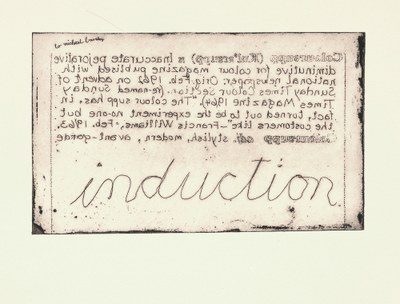 Coloursupp (Kul'ersupp) n Inaccurate pejorative
diminutive for colour magazine publised with
national newspaper. Orig. Feb. 1962 on advent of
Sunday Times Colour Section.. (re-named Sunday
Times Magazine 1964). "The colour supp has, in
fact, turned out to be the experiment no-one but
the customers like"-Francis Williams, Feb. 1963.
Coloursupp adj. stylish, modern, avant-garde
induction